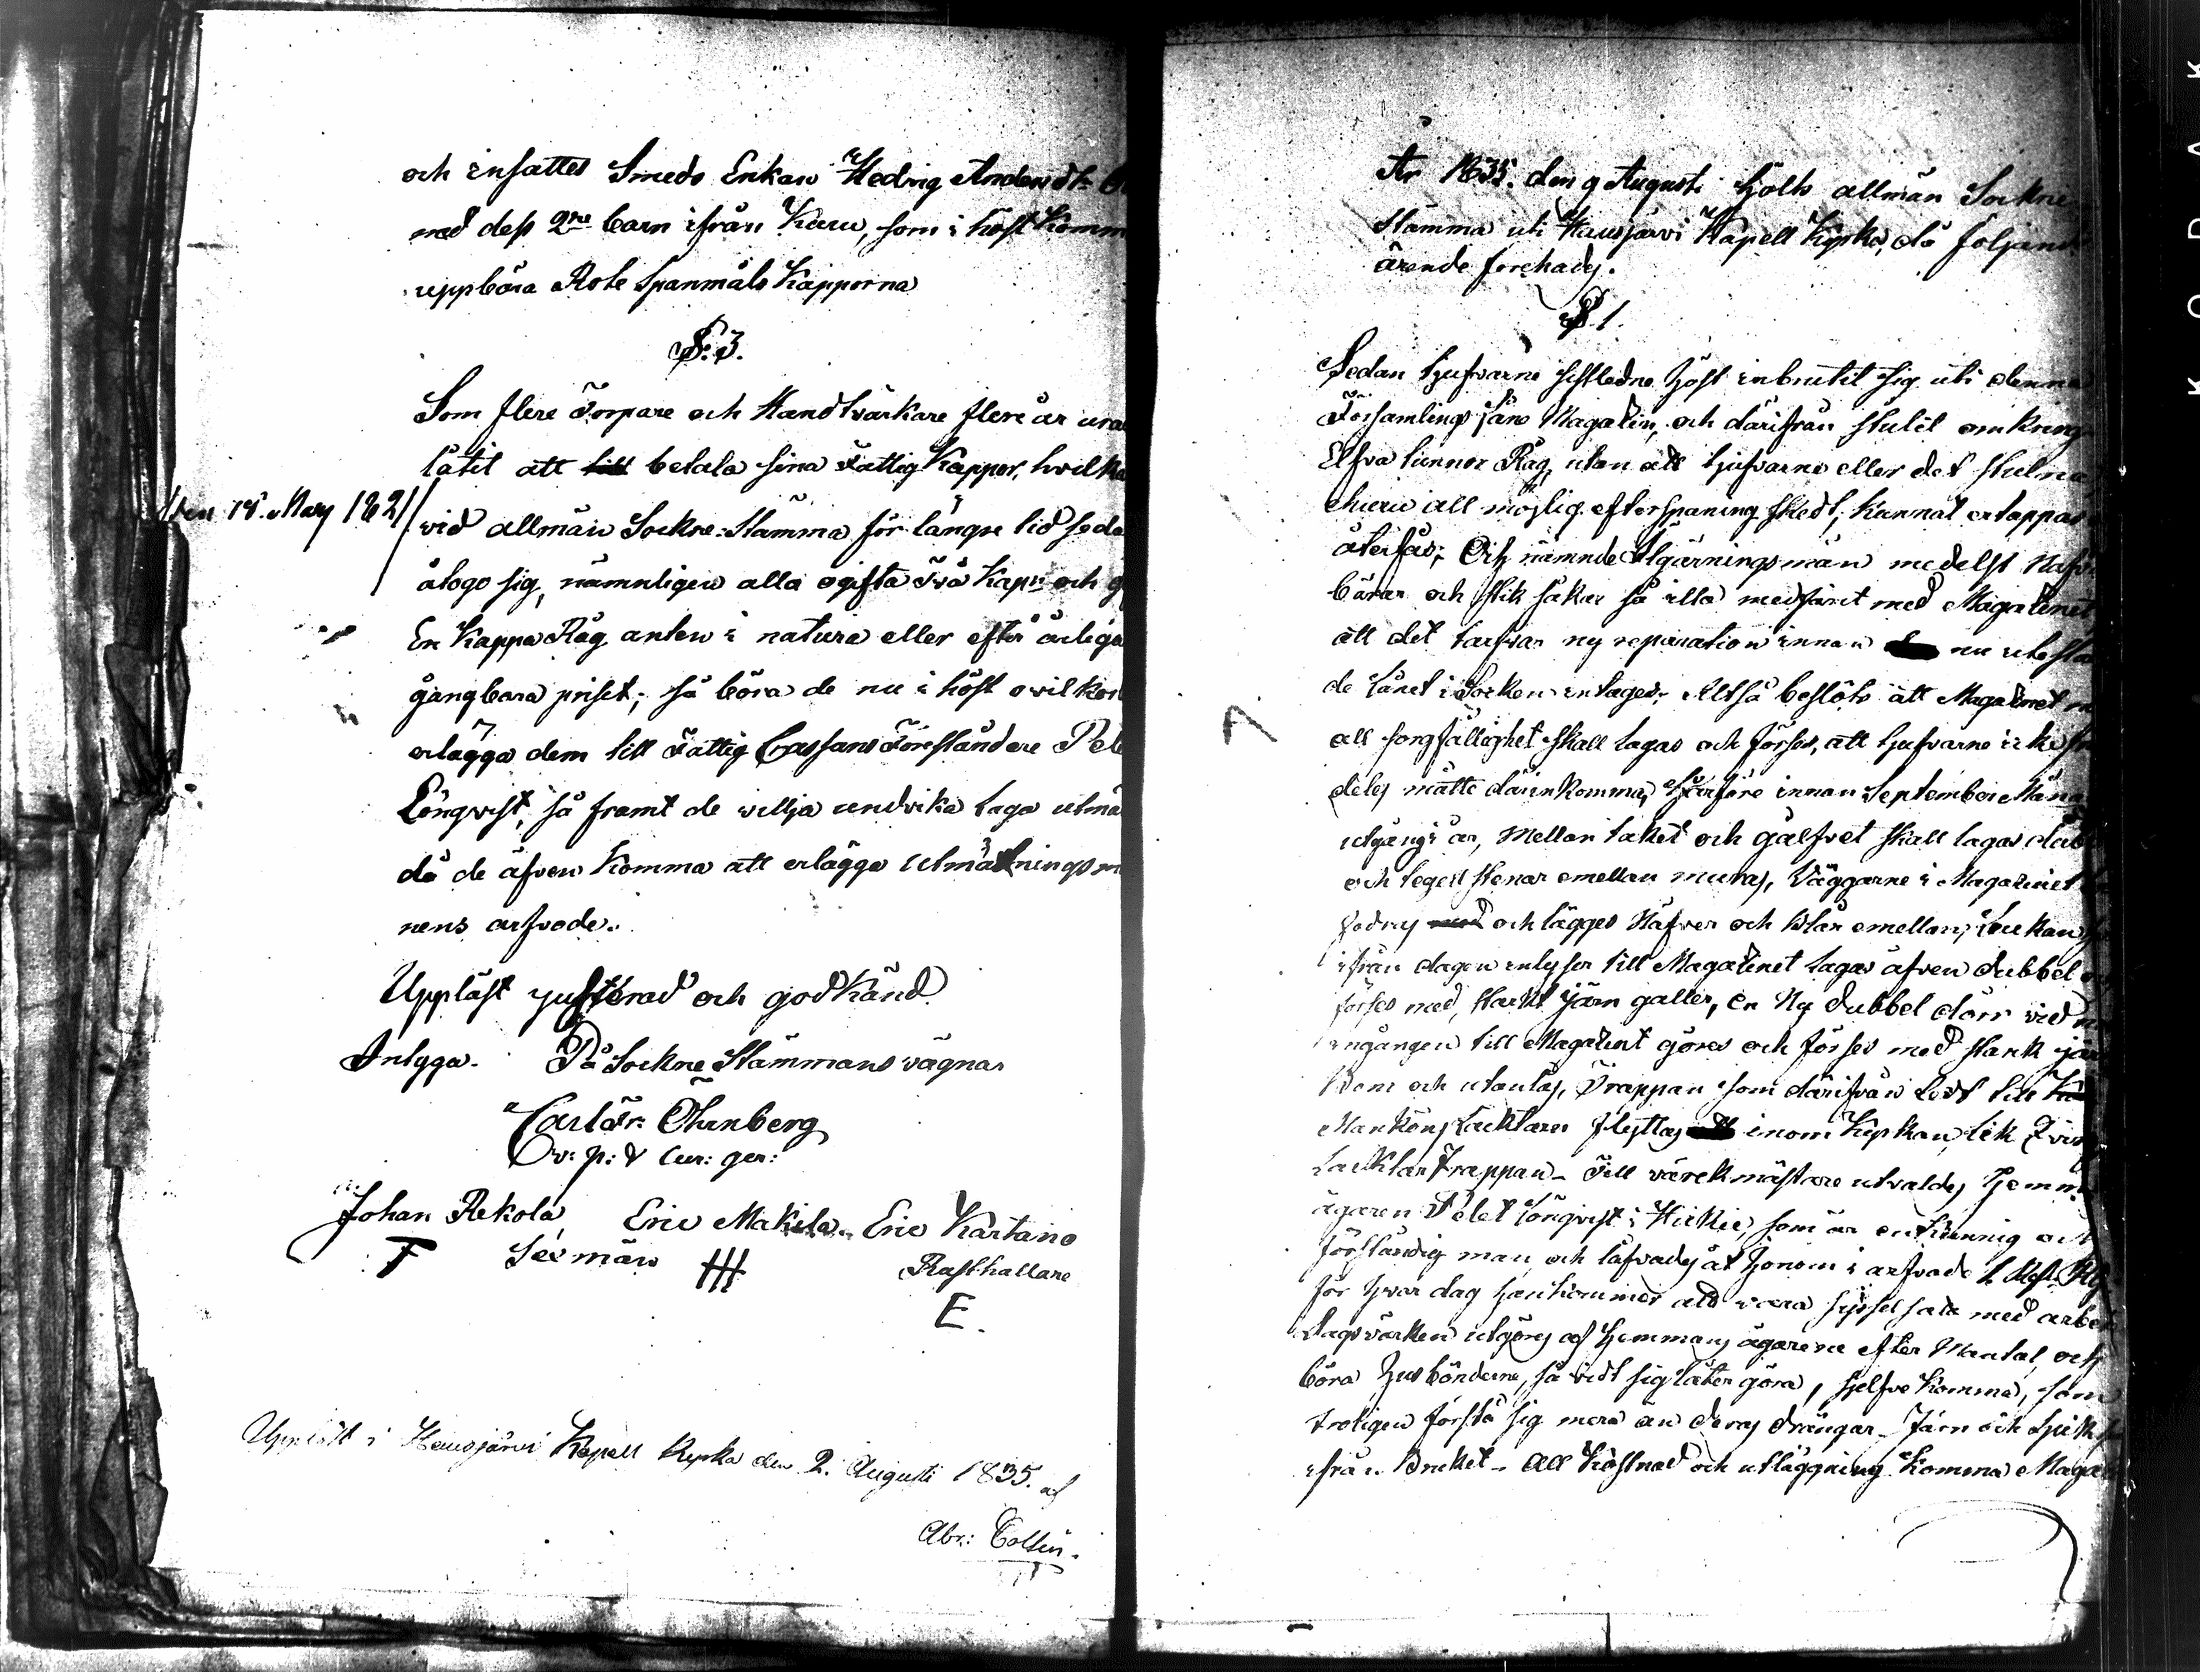 och insattes Smeds Enkan Hedvig Andersdr
med dess 2ne barn ifrån Karu, som i höst Komm
uppbära Rote Spanmåls Kapporna
§: 3.
Som flere Torpare och Handtvärkare flere år una
låtit att betala sina Fattig Kappor, hvilka
den 15. Maij 1821
vid allmän Sockne-Stämma för längre tid seda
åtogo sig, nämnligen alla ogifta Två Kapr och g
En Kappa Råg anten i natura eller efter årliga
gångbara priset; så böra de nu i höst ovilkor
erlägga dem till Fattig Cassans Föreståndare Pet
Lönqvist, så framt de villja undvika laga utmä
då de äfven Komma att erlägga Utmätnings m
nens arfvode.
Uppläst justerad och godkänd.
Intyga. På Sockne Stämmans vägnar
Carl Fr: Ohrnberg
v: p: & Cur: ger:
Johan Rekola Eric Makela Eric Kartano
T Sexmän HH Rusthallare
E.
Uppläst i Hausjärvi Kapell Kyrka den 2. Augusti 1835. af
Abr: Collin.
År 1835. den 9 Augusti hölts allmän Sockne
Stämma uti Hausjärvi Kapell Kyrka, då följand
ärende förehades.
§ 1.
Sedan tjufvarne sistledne höst inbrutit sig uti denna
Församlings Låne Magazin, och därifrån stulit omkring
Elfva tunnor Råg, utan att tjufvarne eller det stulna,
ehuru all möjelig efterspaning skedt, kunnat ertappas
återfås; Och nämnde Ilgärningsmän medelst Nafv
bårar och stik sågar så illa medfarit med Magazinet
att det tarfvar ny reparation innan nu utestå
de Lånet i Socken intages; Altså beslöts att Magazinet m
all sorgfällighet skall lagas och förses, att tjufvarne icke fr
deles måtte därinkomma, hvarföre innan September Mån
utgång i år, Mellan taket och gålfvet skall lagas dub
och tegel stenar emellan muras, Väggarne i Magazinet
fodras och lägges Näfver och Blår emellan; Luckan
ifrån dagen inlyser till Magazinet lagas äfven dubbel
förses med starkt järn galler, en Ny dubbel dörr vid
ingången till Magazinet göres och förses med stark jär
Bom och utanlås, Trappan som därifrån ledt till
Manköns Läcktaren flyttas inom Kyrkan, lik Qvin
Lacktar Trappan - Till värckmästare utvaldes Hemm
ägaren Petet Lönqvist i Hickie, som är en kunnig och
förståndig man och låfvades åt honom i arfvode 1
för hvar dag han kommer att vara sysselsatt med arbe
Dagsvärken utgöres af Hemmans ägarene efter Mantal, och
böra husbönderne, så vidt sig låter göra, sjelfve Komma, som
troligen förstå sig mera än deras drängar. Järn och Spik
ifrån Bruket - All Kostnad och utläggning Komma Magaz